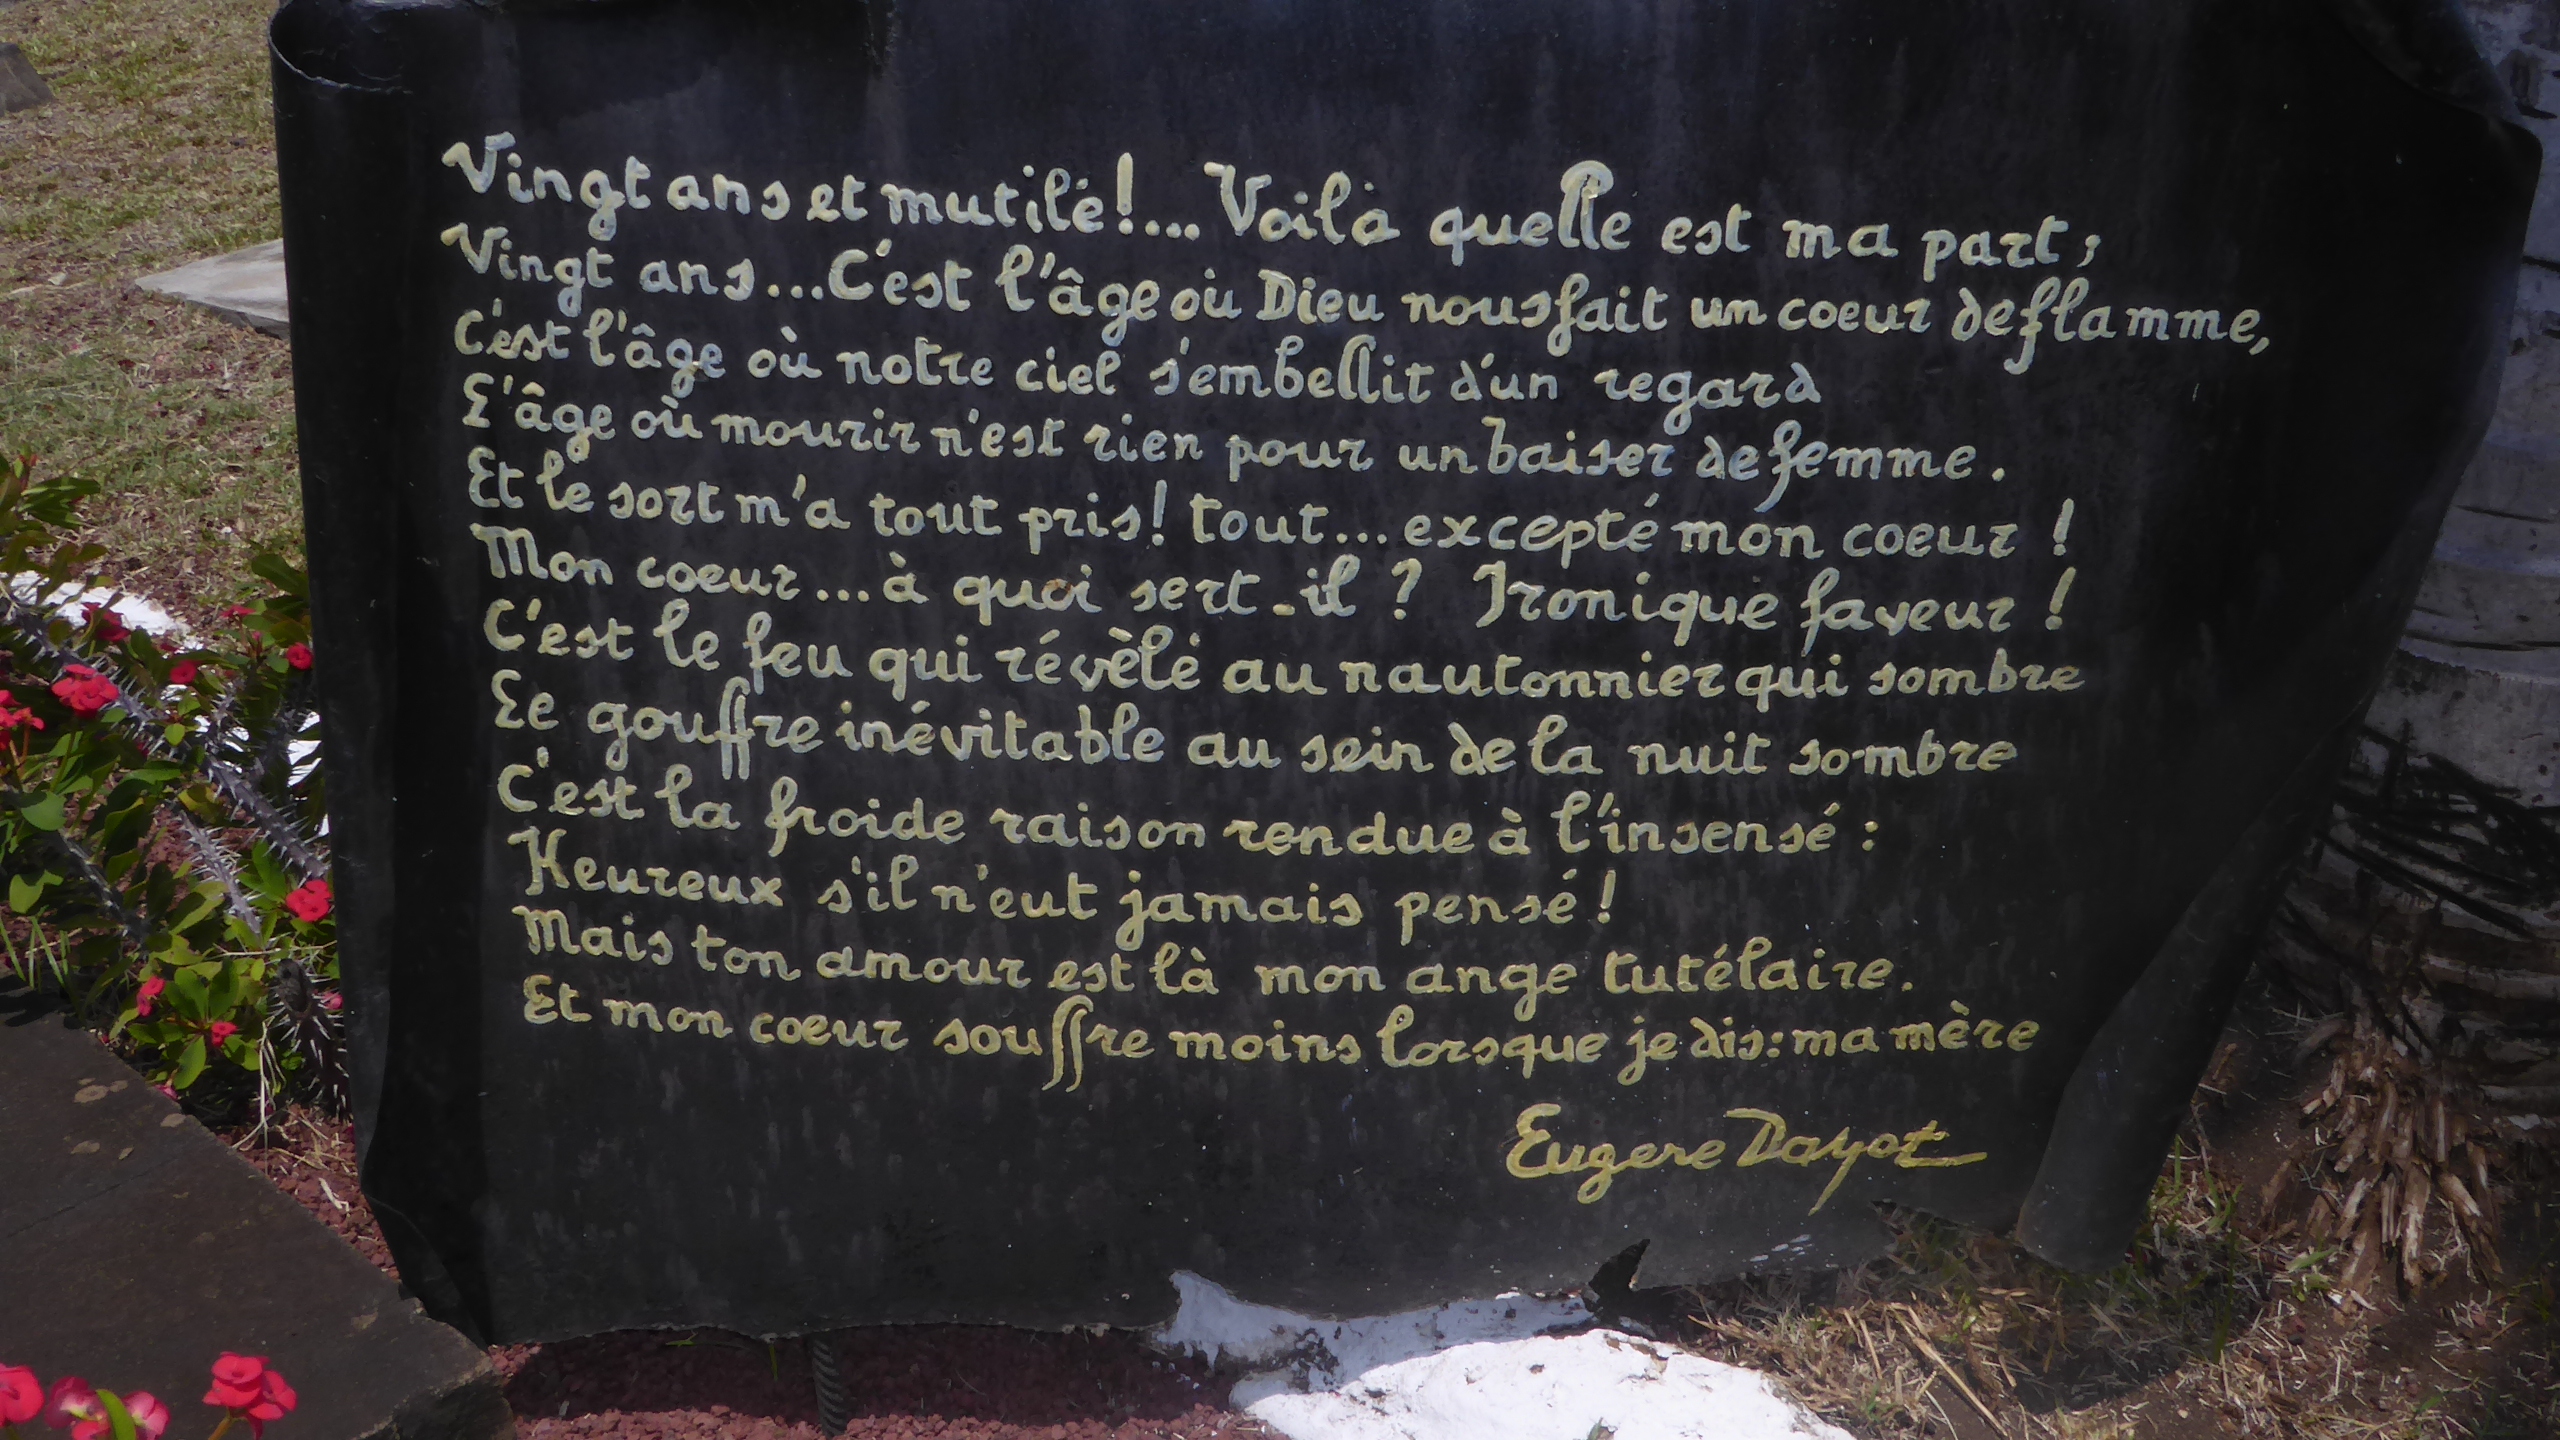 Vingt ans et mutilé!... Voilà quelle est ma part;
Vingt ans... C'est l'âge où Dieu nous fait un coeur de flamme,
C'est l'âge où notre ciel s'embellit d'un regard
L'âge où mourir n'est rien pour un baiser de femme.
Et le sort m'a tout pris! tout... excepté mon coeur !
Mon coeur... à quoi sert-il ? Ironique faveur !
C'est le feu qui révèlé au nautonnier qui sombre
Le gouffre inévitable au sein de la nuit sombre
C'est la froide raison rendue à l'insensé :
Heureux s'il n'eut jamais pensé !
Mais ton amour est là mon ange tutélaire.
Et mon coeur souffre moins lorsque je dis: ma mère
Eugene Dayot